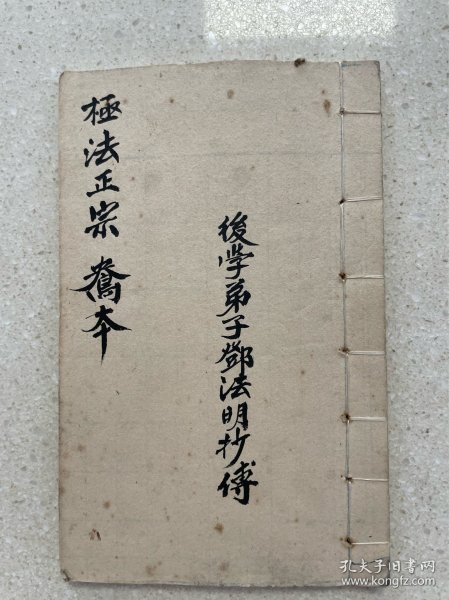 後學弟子鄧法明抄傳
極法正宗 本
孔夫子旧书网
www.kongfz.com